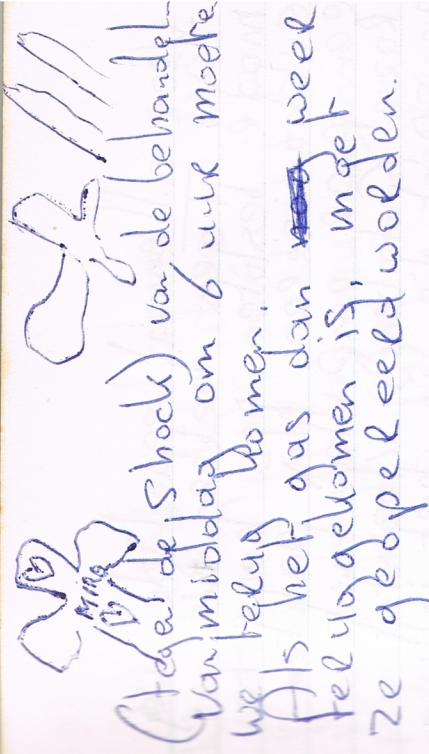 Mira
(tegen de shock) van de behandel
Vanmiddag om 6 uur moete
we terug komen.
Als het gas dan weer
teruggekomen is, moet
ze geopereerd worden.